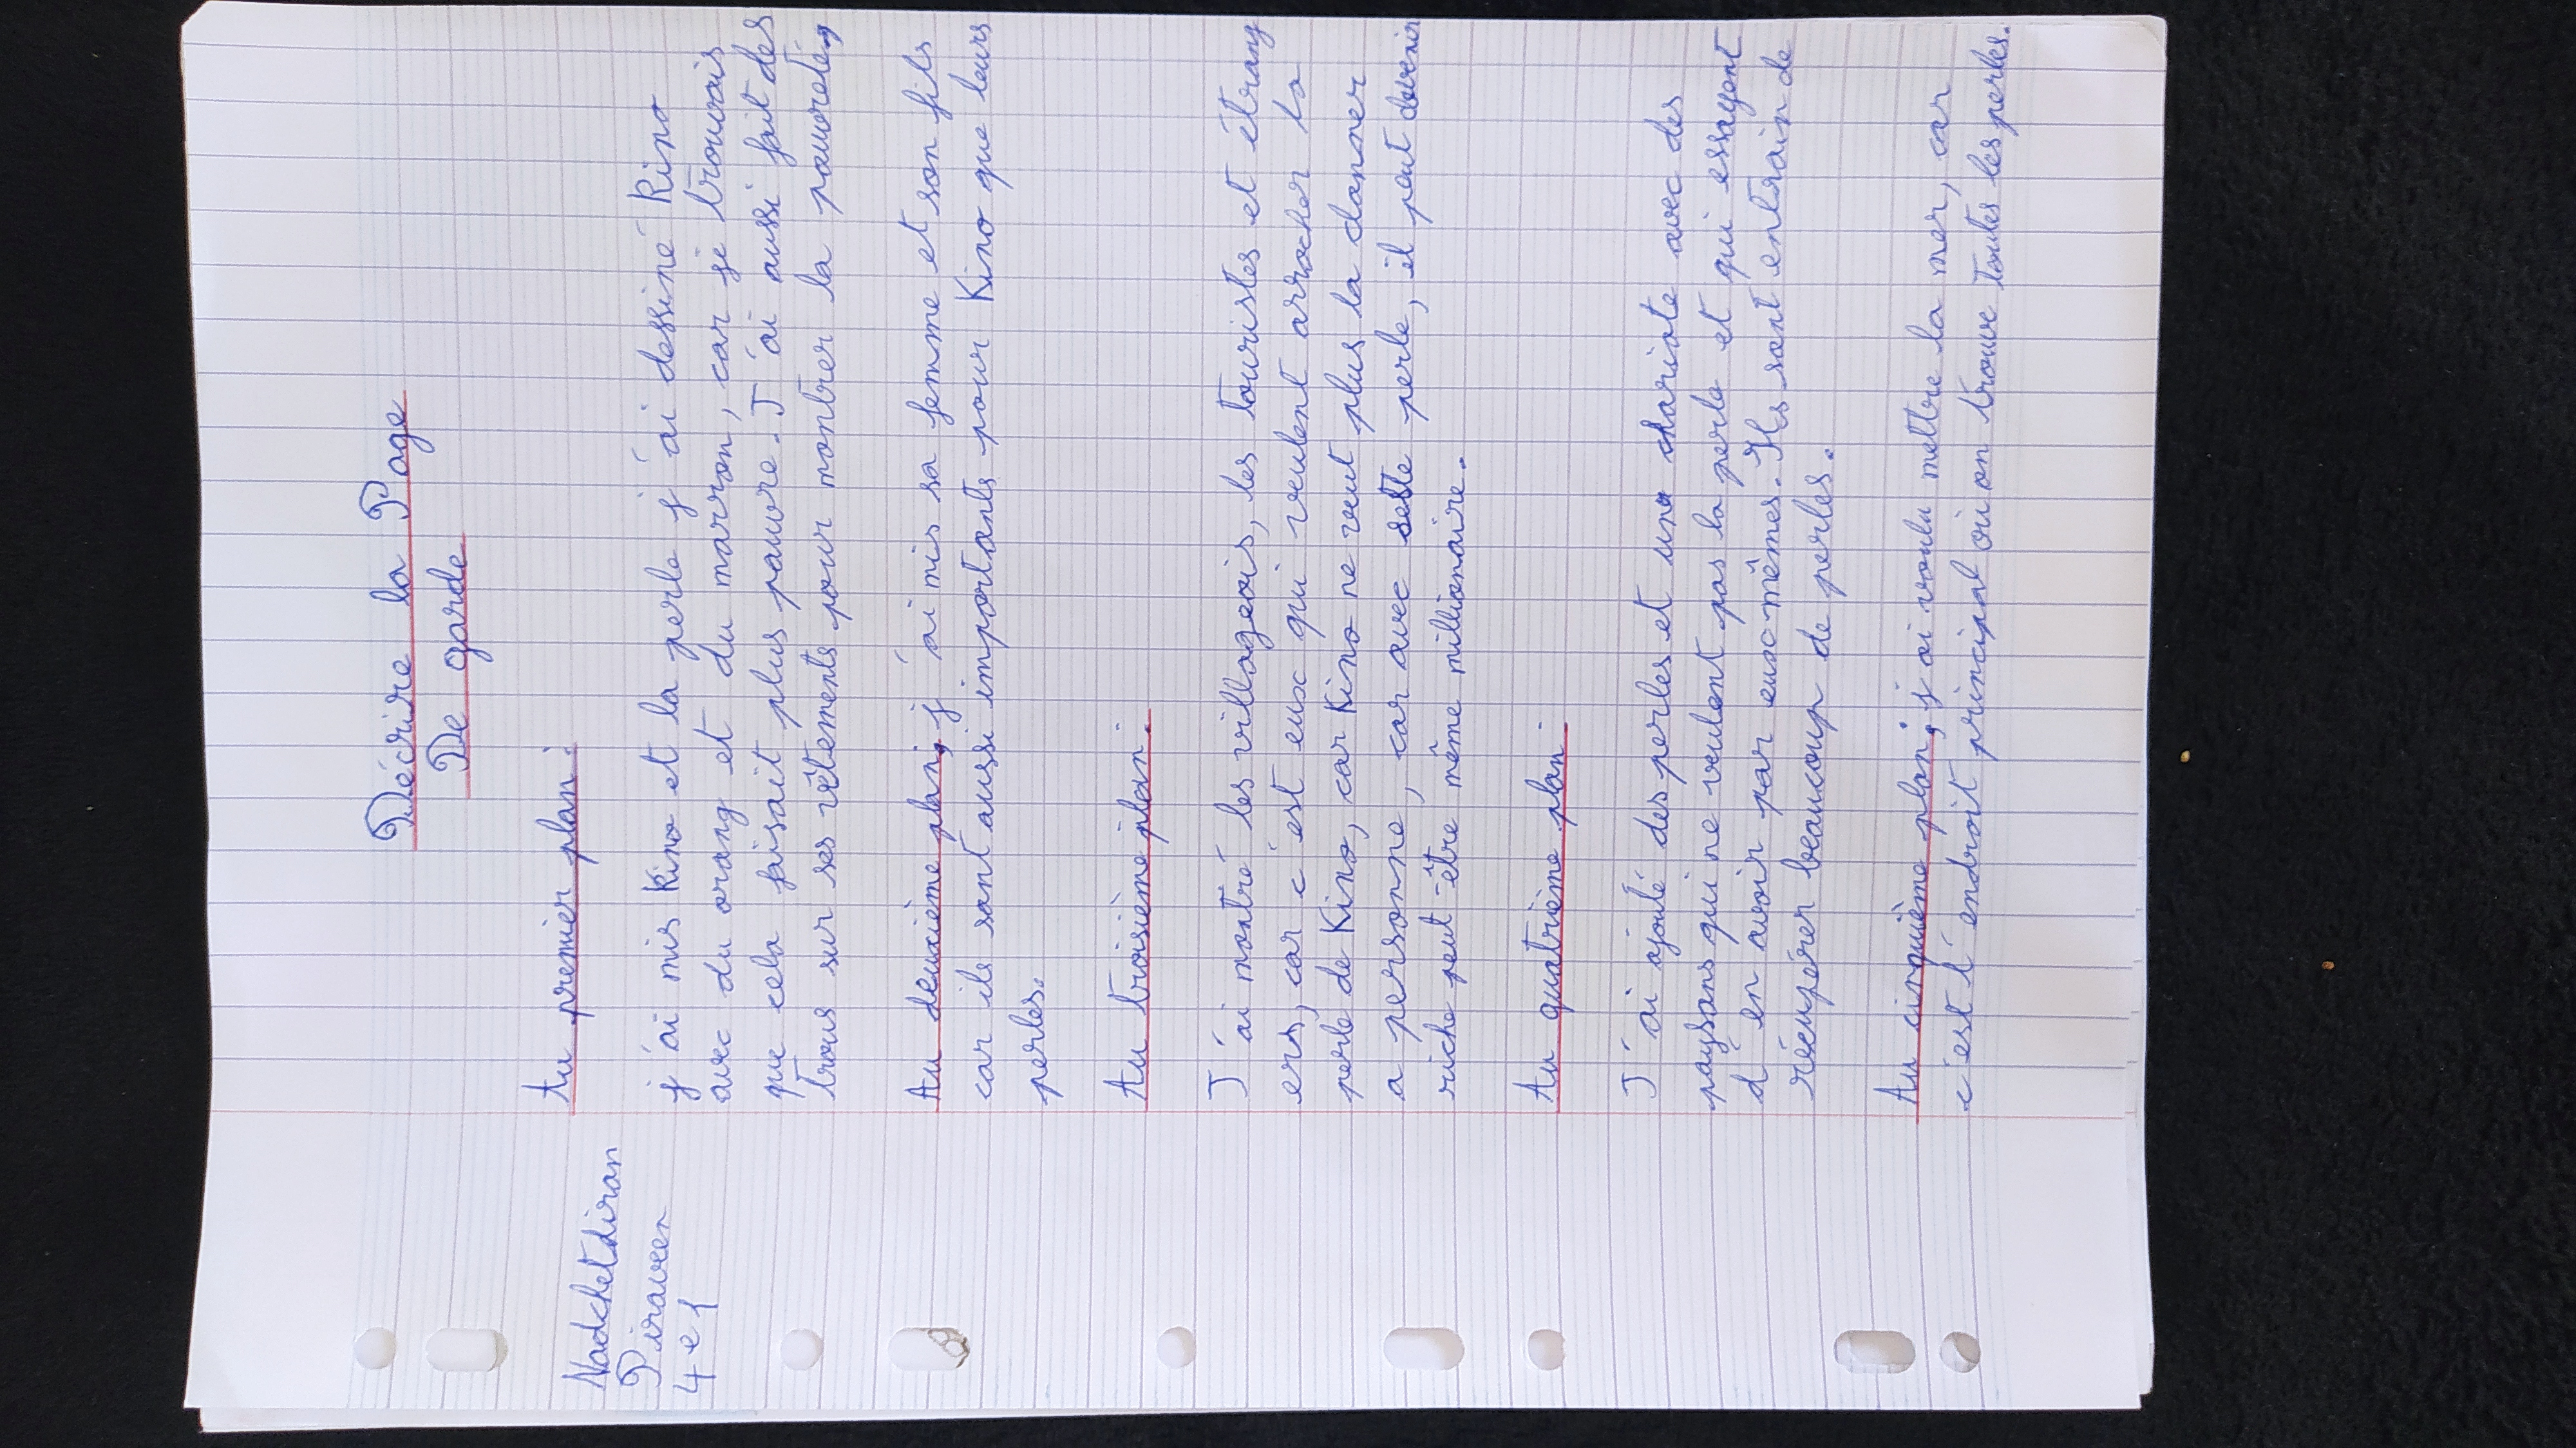 Nadchetdiran
Piraveen
4e1
Décrire la Page
De garde
Au premier plan :
j'ai mis Kino et la perle j'ai dessiné Kino
avec du orang et du marron, car je trouvais
que cela faisait plus pauvre. J'ai aussi fait des
trous sur ses vêtements pour montrer la pauvreté,
Au deuxième plan, j'ai mis sa femme et son fils
car ils sont aussi importants pour Kino que leurs
perles.
Au troisième plan.
J'ai montré les villageois, les touristes et étrang
ers, car c'est eux qui veulent arracher la
perle de Kino, car Kino ne veut plus la donner
a personne, car avec sette perle, il peut devenir
riche peut-être même millionaire.
Au quatrième plan.
J'ai ajouté des perles et une chariote avec des
paysans qui ne veulent pas la perle et qui essayent
d'en avoir par eux-mêmes. Ils sont entrain de
récupérer beaucoup de perles.
Au cinquième plan, j'ai voulu mettre la mer, car
c'est l'endroit principal où on trouve toutes les perles.